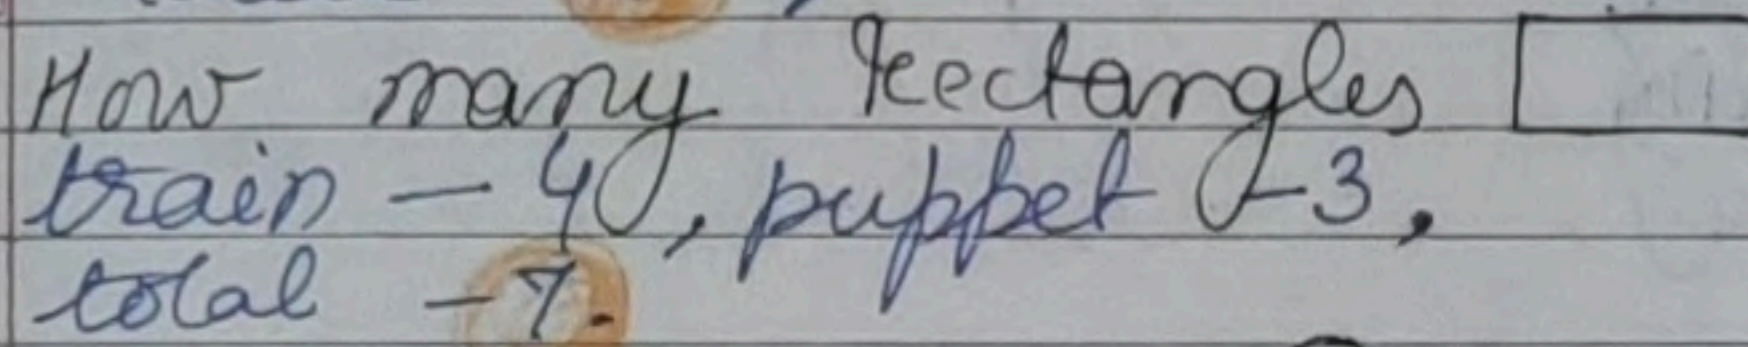 How many Rectangles
train - 4, puppet - 3,
total - 7.